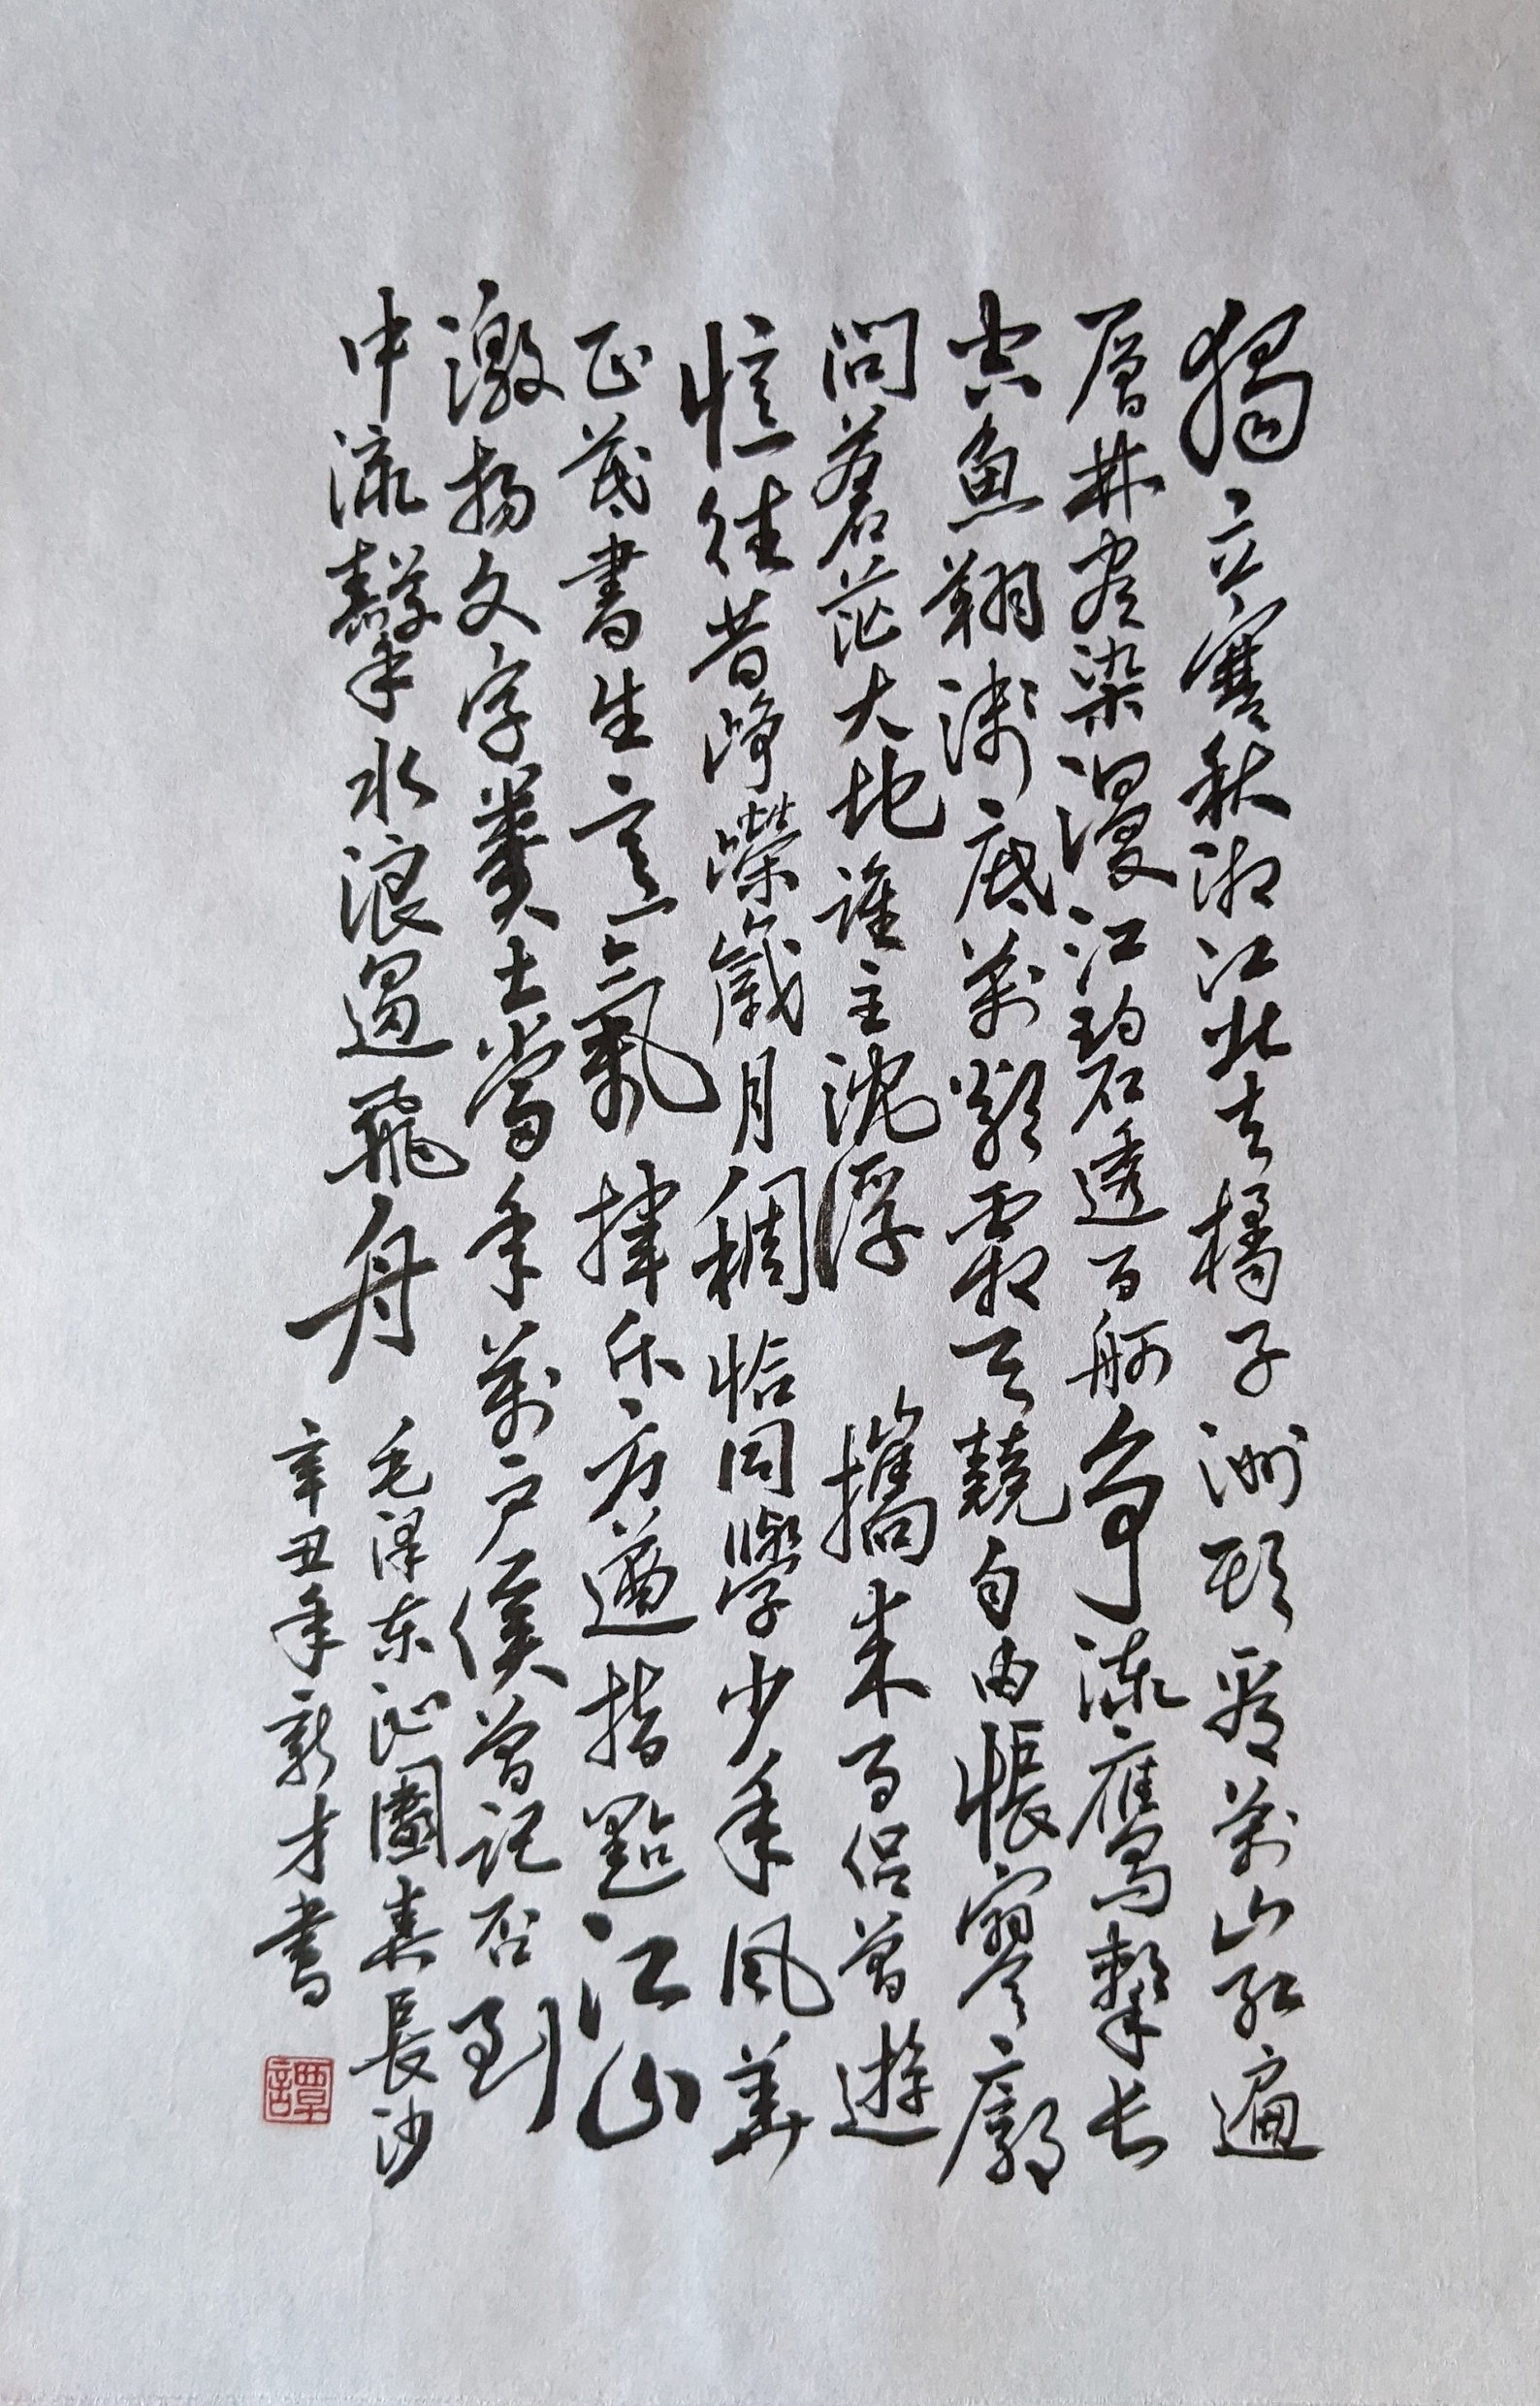 獨立寒秋湘江北去橘子洲頭看萬山紅遍
層林盡染漫江碧透百舸争流鷹擊長
空魚翔淺底萬類霜天競自由悵寥廓
問蒼茫大地誰主沈浮 攜来百侣曾遊
憶往昔崢嶸歲月稠恰同學少年風華
正茂書生意氣揮斥方遒指點江山
激揚文字糞土當年萬户侯曾記否到
中流擊水浪遏飛舟
毛澤东沁園春長沙
辛丑年新才書
譚